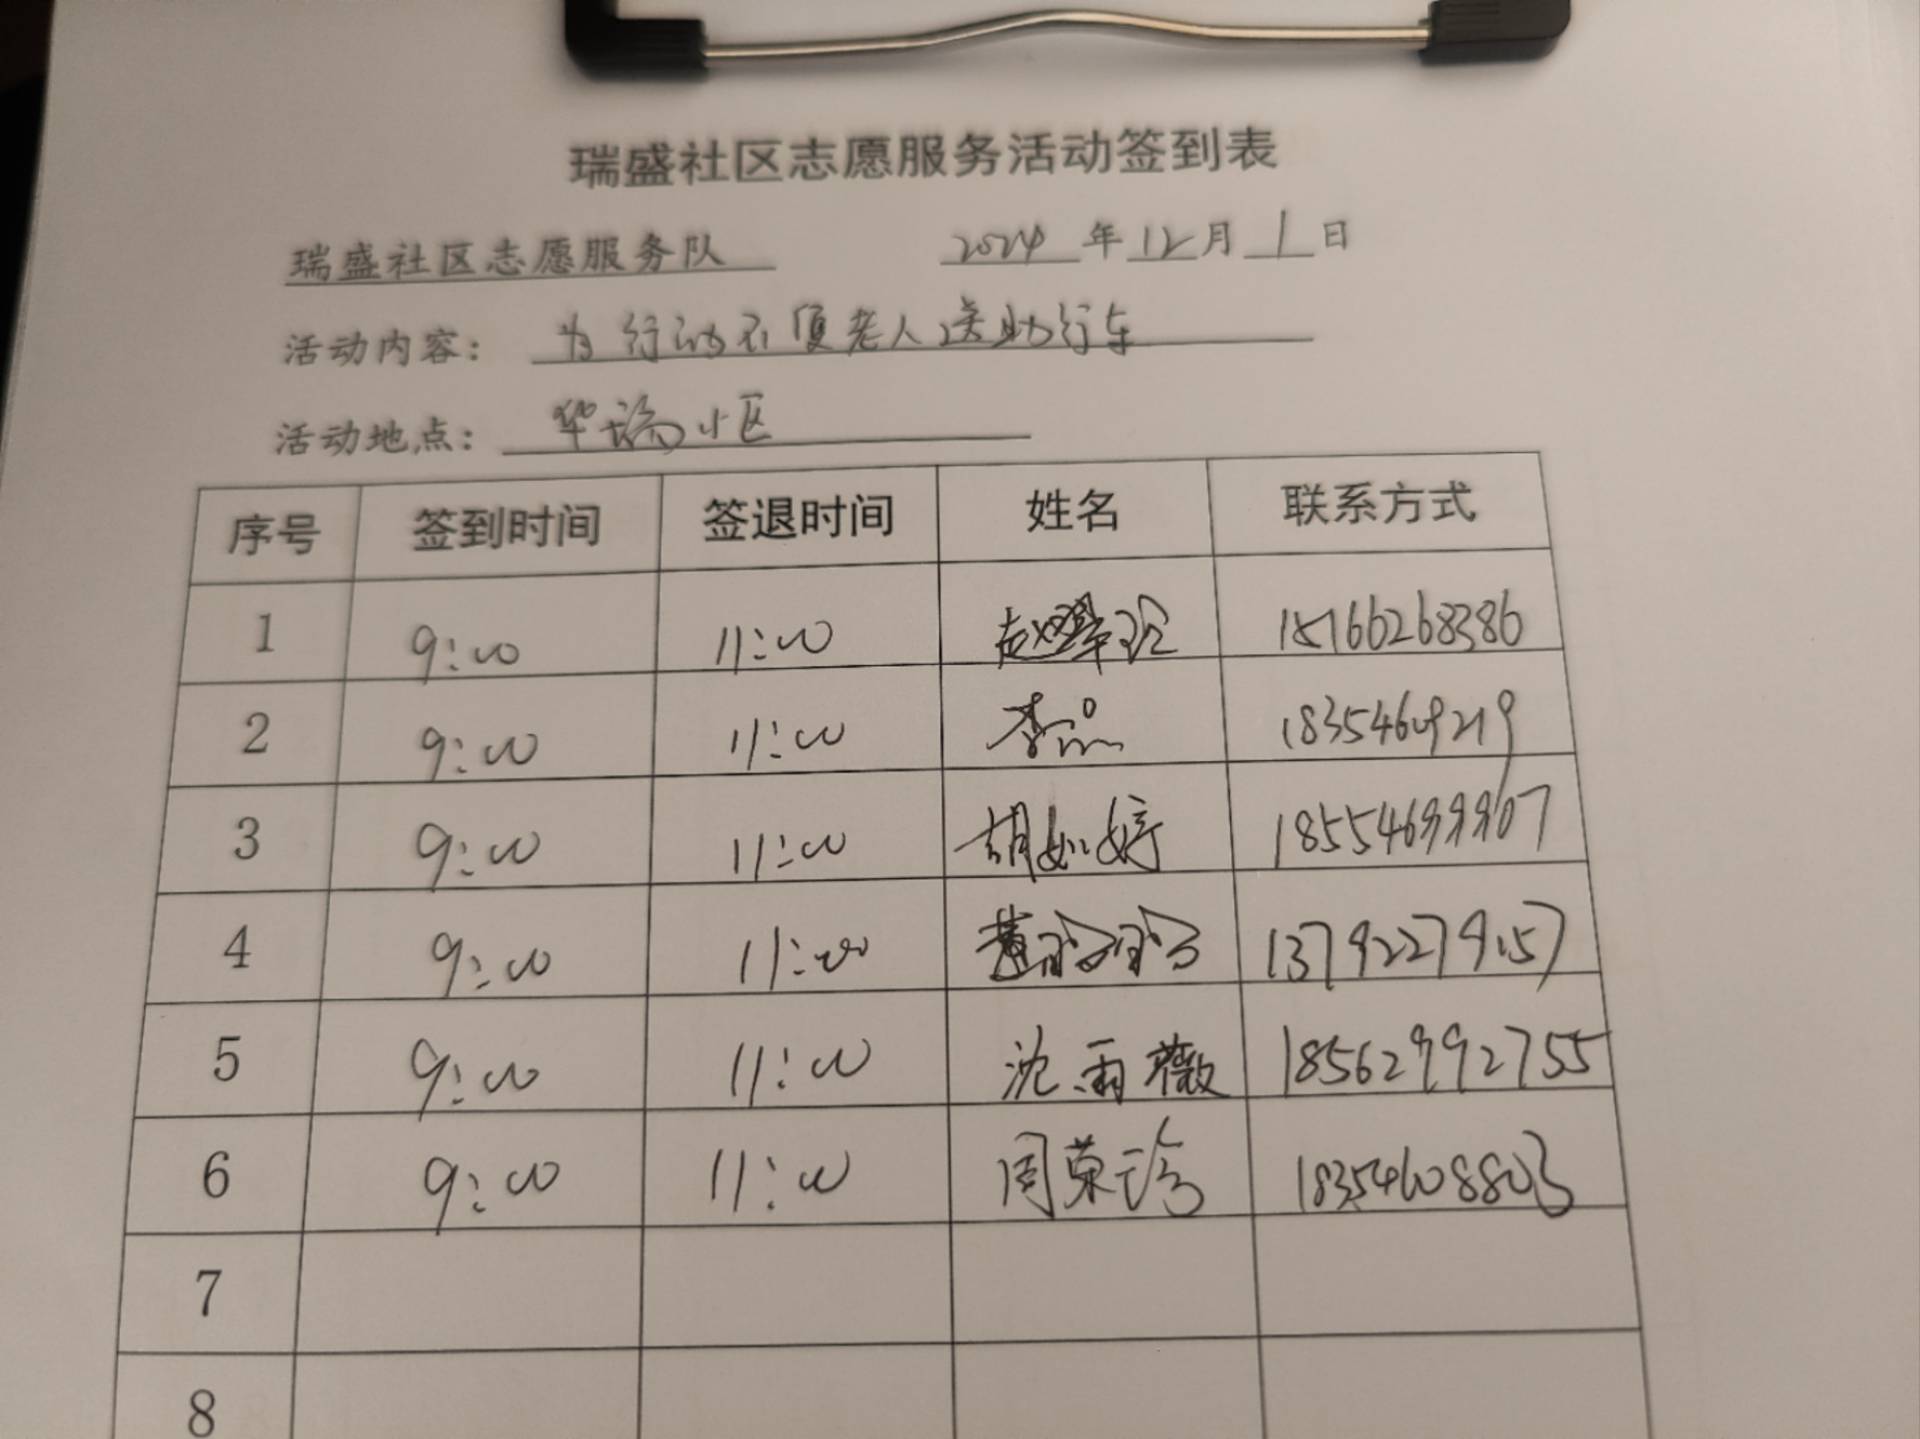 瑞盛社区志愿服务活动签到表
瑞盛社区志愿服务队 2024 年 12 月 1 日
活动内容： 为行动不便老人送助行车
活动地点： 华瑞小区
序号 签到时间 签退时间 姓名 联系方式
1 9:00 11:00 赵 15166268386
2 9:00 11:00 李 18354609219
3 9:00 11:00 胡如婷 18554699907
4 9:00 11:00 黄玲玲 13792279157
5 9:00 11:00 沈雨薇 18562992755
6 9:00 11:00 周荣珍 18354608803
7
8